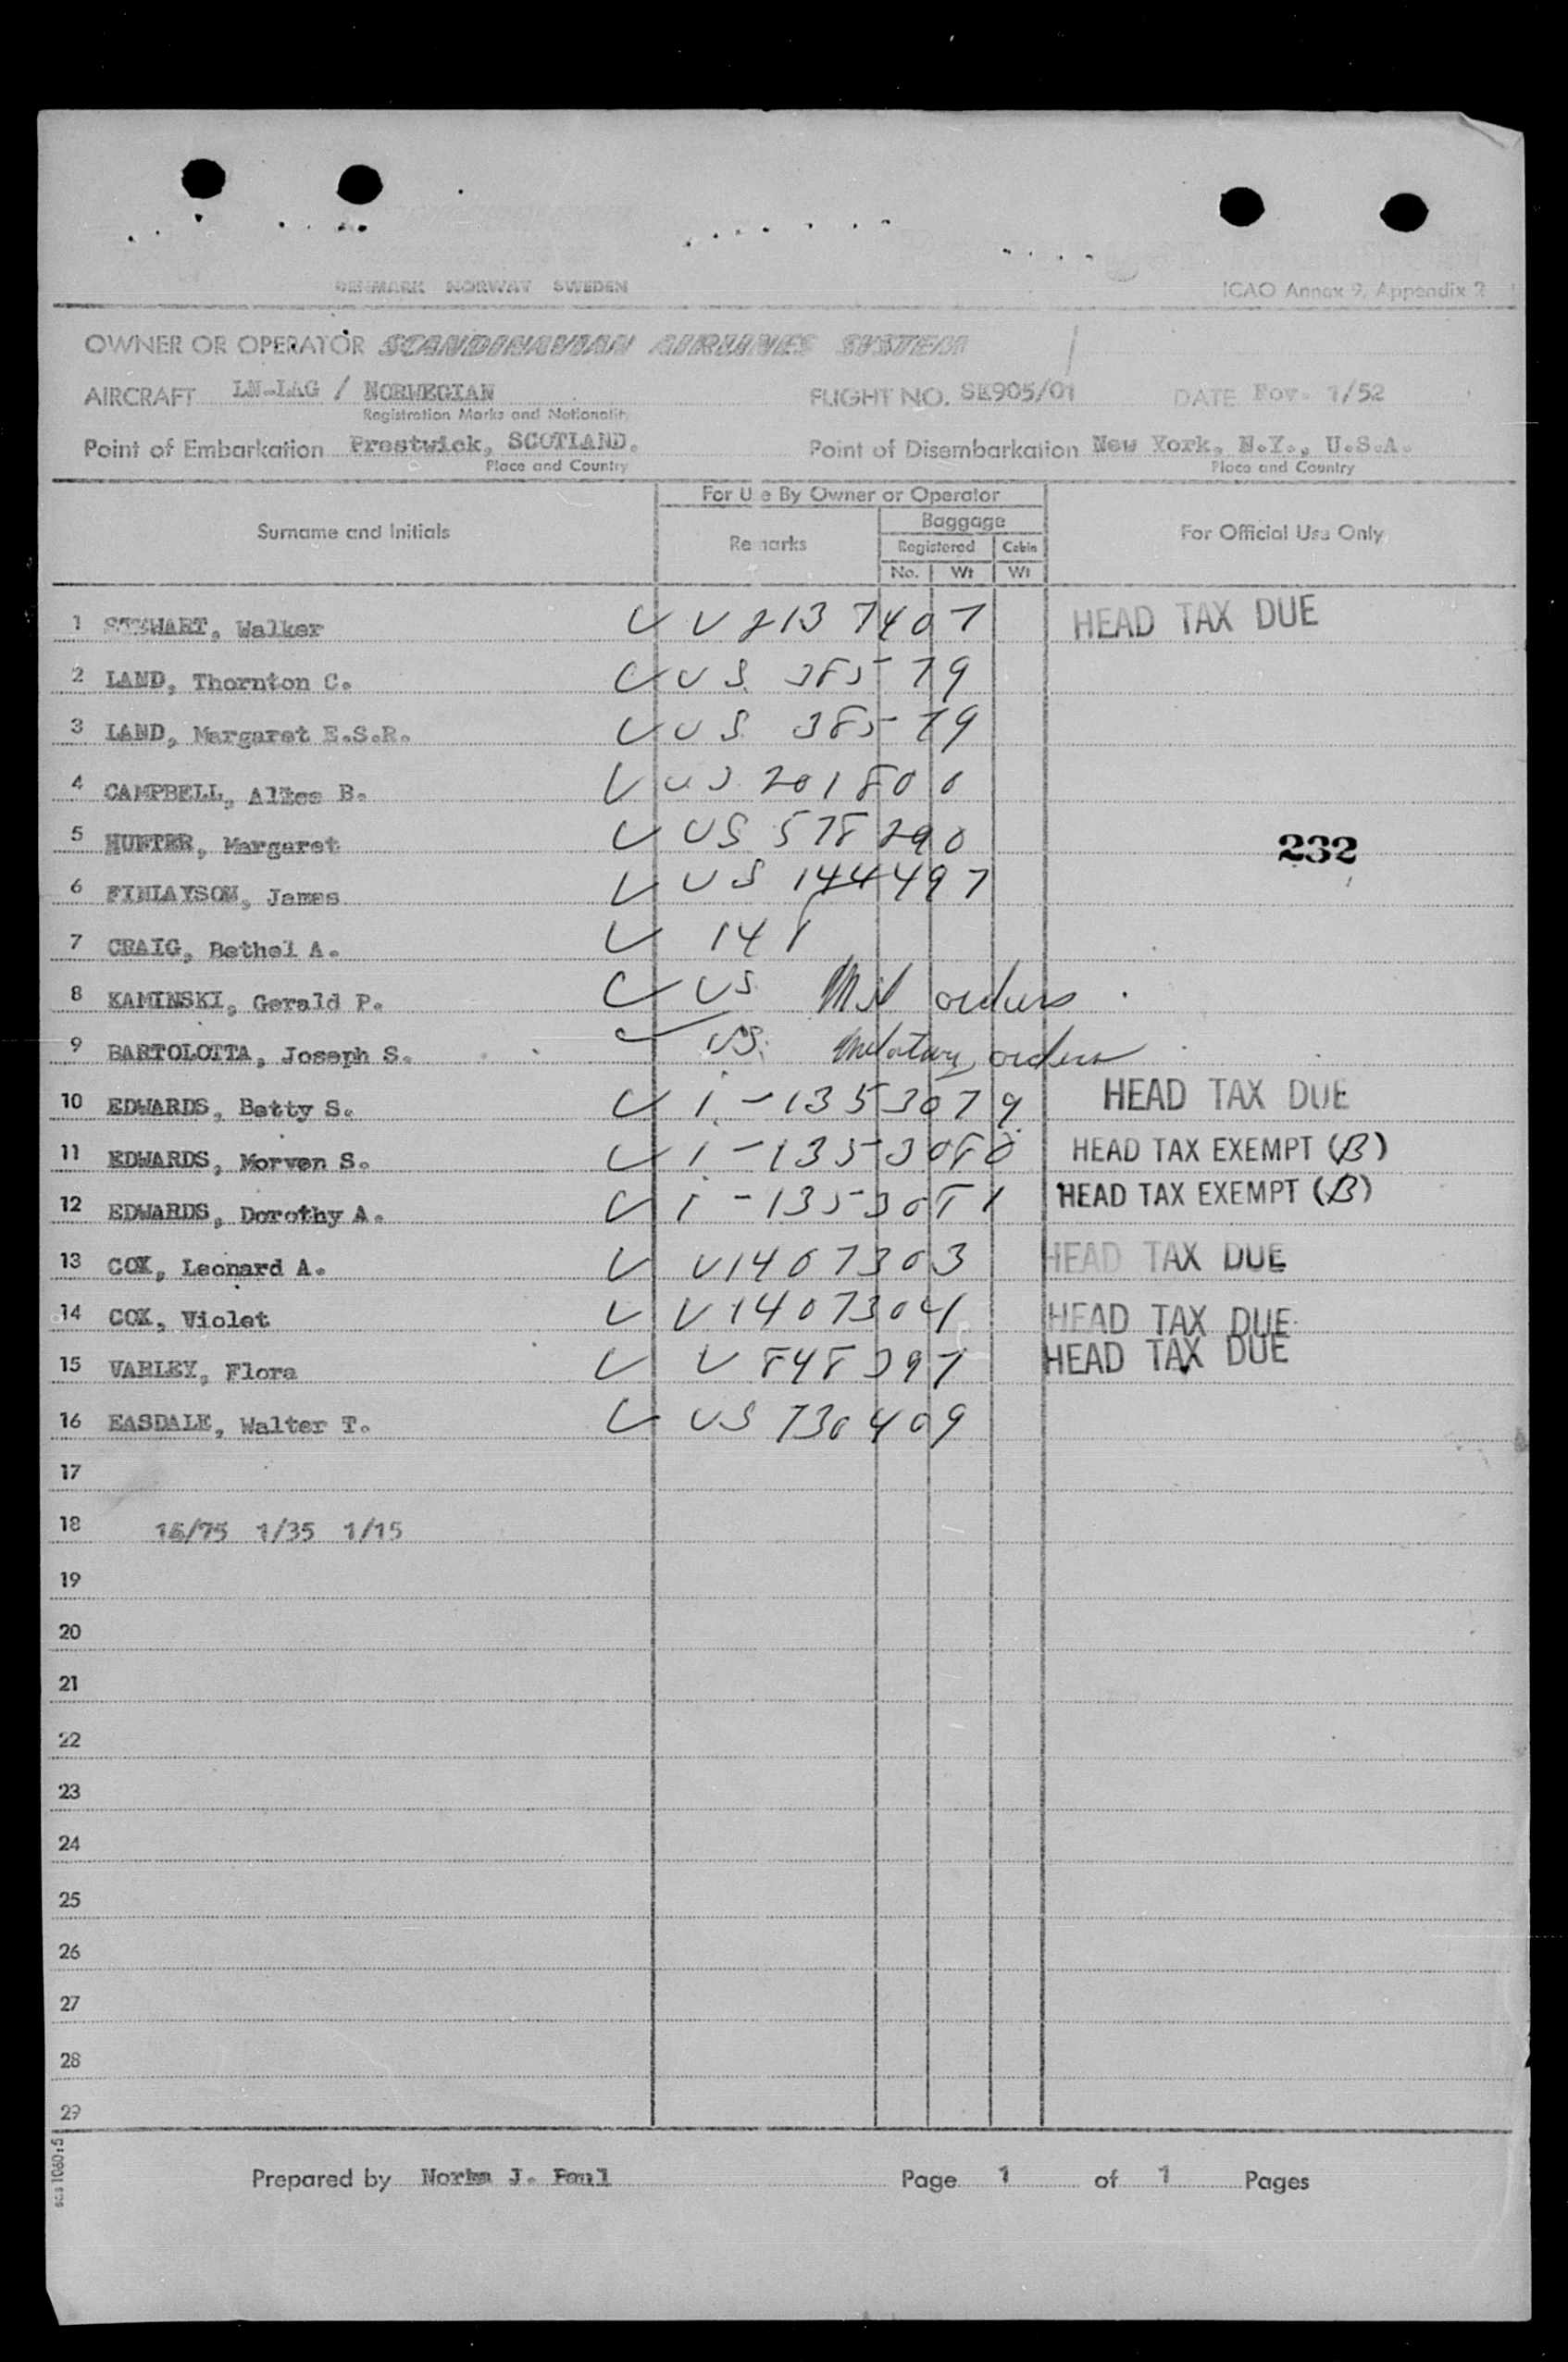 DENMARK NORWAY SWEDEN
ICAO Annex 9, Appendix 2
OWNER OR OPERATOR SCANDINAVIAN AIRLINES SYSTEM
AIRCRAFT LN-LAG / NORWEGIAN FLIGHT NO. SK905/01 DATE Nov. 1/52
Registration Marks and Nationality
Point of Embarkation Prestwick, SCOTLAND. Point of Disembarkation New York, N.Y., U.S.A.
Place and Country Place and Country
For Use By Owner or Operator
Surname and Initials Remarks Baggage For Official Use Only
Registered Cabin
No. Wt Wt
1 STEWART, Walker V 2137407 HEAD TAX DUE
2 LAND, Thornton C. US 38579
3 LAND, Margaret E.S.R. US 38579
4 CAMPBELL, Alice B. US 201800
5 HUNTER, Margaret US 578290 232
6 FINLAYSON, James US 144497
7 CRAIG, Bethel A.
8 KAMINSKI, Gerald P. US Mil orders
9 BARTOLOTTA, Joseph S. US. Military orders
10 EDWARDS, Betty S. i-1353079 HEAD TAX DUE
11 EDWARDS, Morven S. i-1353080 HEAD TAX EXEMPT (B)
12 EDWARDS, Dorothy A. i-1353081 HEAD TAX EXEMPT (B)
13 COX, Leonard A. V1407303 HEAD TAX DUE
14 COX, Violet V1407304 HEAD TAX DUE
15 VARLEY, Flora V 848397 HEAD TAX DUE
16 EASDALE, Walter T. US 730409
17
18 1/35 1/15
19
20
21
22
23
24
25
26
27
28
29
sas 1060:5
Prepared by Norma J. Paul Page 1 of 1 Pages